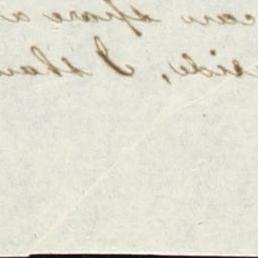 can spare a
side, I shall